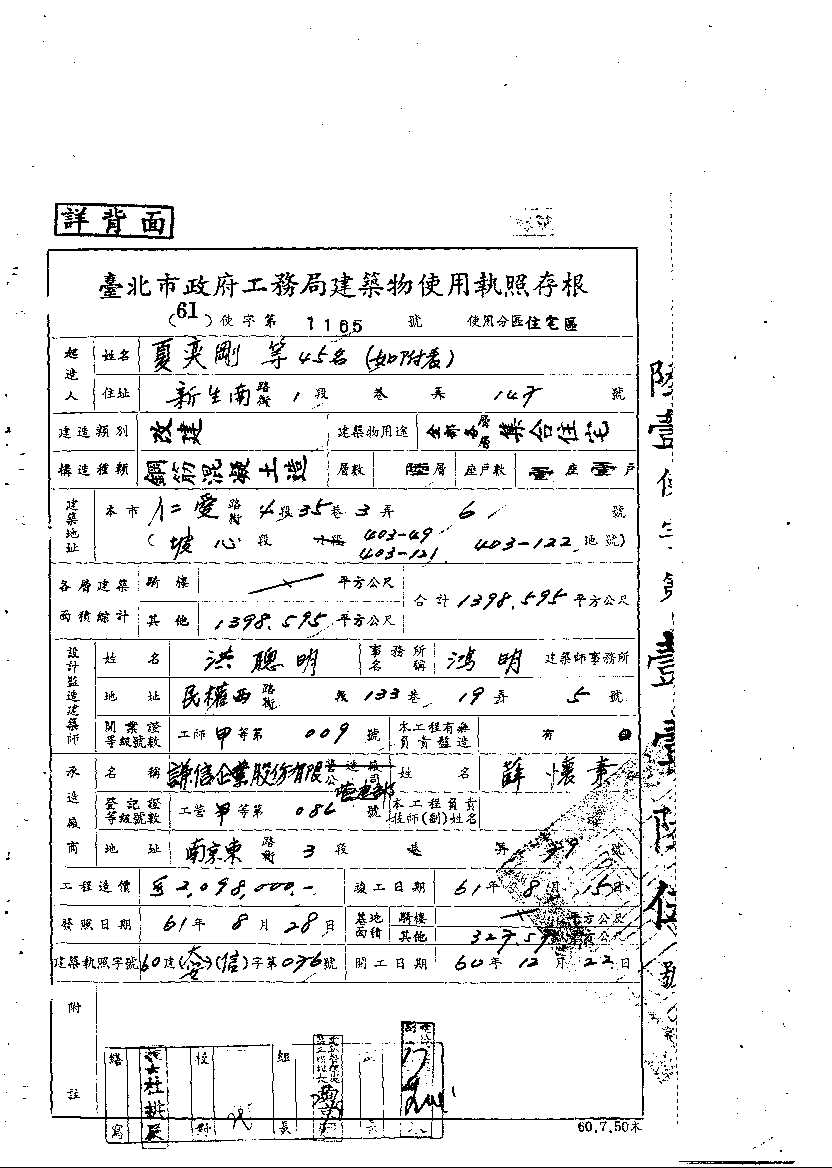 詳背面
臺北市政府工務局建築物使用執照存根
(61)使字第 1165 號 使用分區住宅區
起造人 姓名 夏奕剛 等45名(如附表)
住址 新生南路街 1段 巷 弄 147 號
建造類別 改建 建築物用途 全部各層層集合住宅
構造種類 鋼筋混凝土造 層數 層 座戶數 座 戶
建築地址 本市 仁愛路街 4段35巷3弄 6 號
(坡心 段 小段 403-49 403-121 403-122 地號)
各層建築面積綜計 騎樓 平方公尺 合計1398.595平方公尺
其他 1398.595平方公尺
設計監造建築師 姓名 洪聰明 事務所名稱 鴻明 建築師事務所
地址 民權西路街 段133巷 19弄 5號
開業證等級號數 工師甲等第 009 號 本工程有無負責監造 有
承造廠商 名稱 謙信企業股份有限公司 營造廠 營建部 姓名 薛懷
登記證等級號數 工營甲等第 086 號 本工程負責技師(副)姓名
地址 南京東路街 3段 巷 弄 號
工程造價 2,098,000.- 竣工日期 61年8月15日
發照日期 61年8月28日 基地面積 騎樓 平方公尺
其他 平方公尺
建築執照字號 60建(安)(信)字第036號 開工日期 60年12月22日
附註
繕寫 校對 組長 長
60.7.50本
陸壹使字第壹壹陸伍號